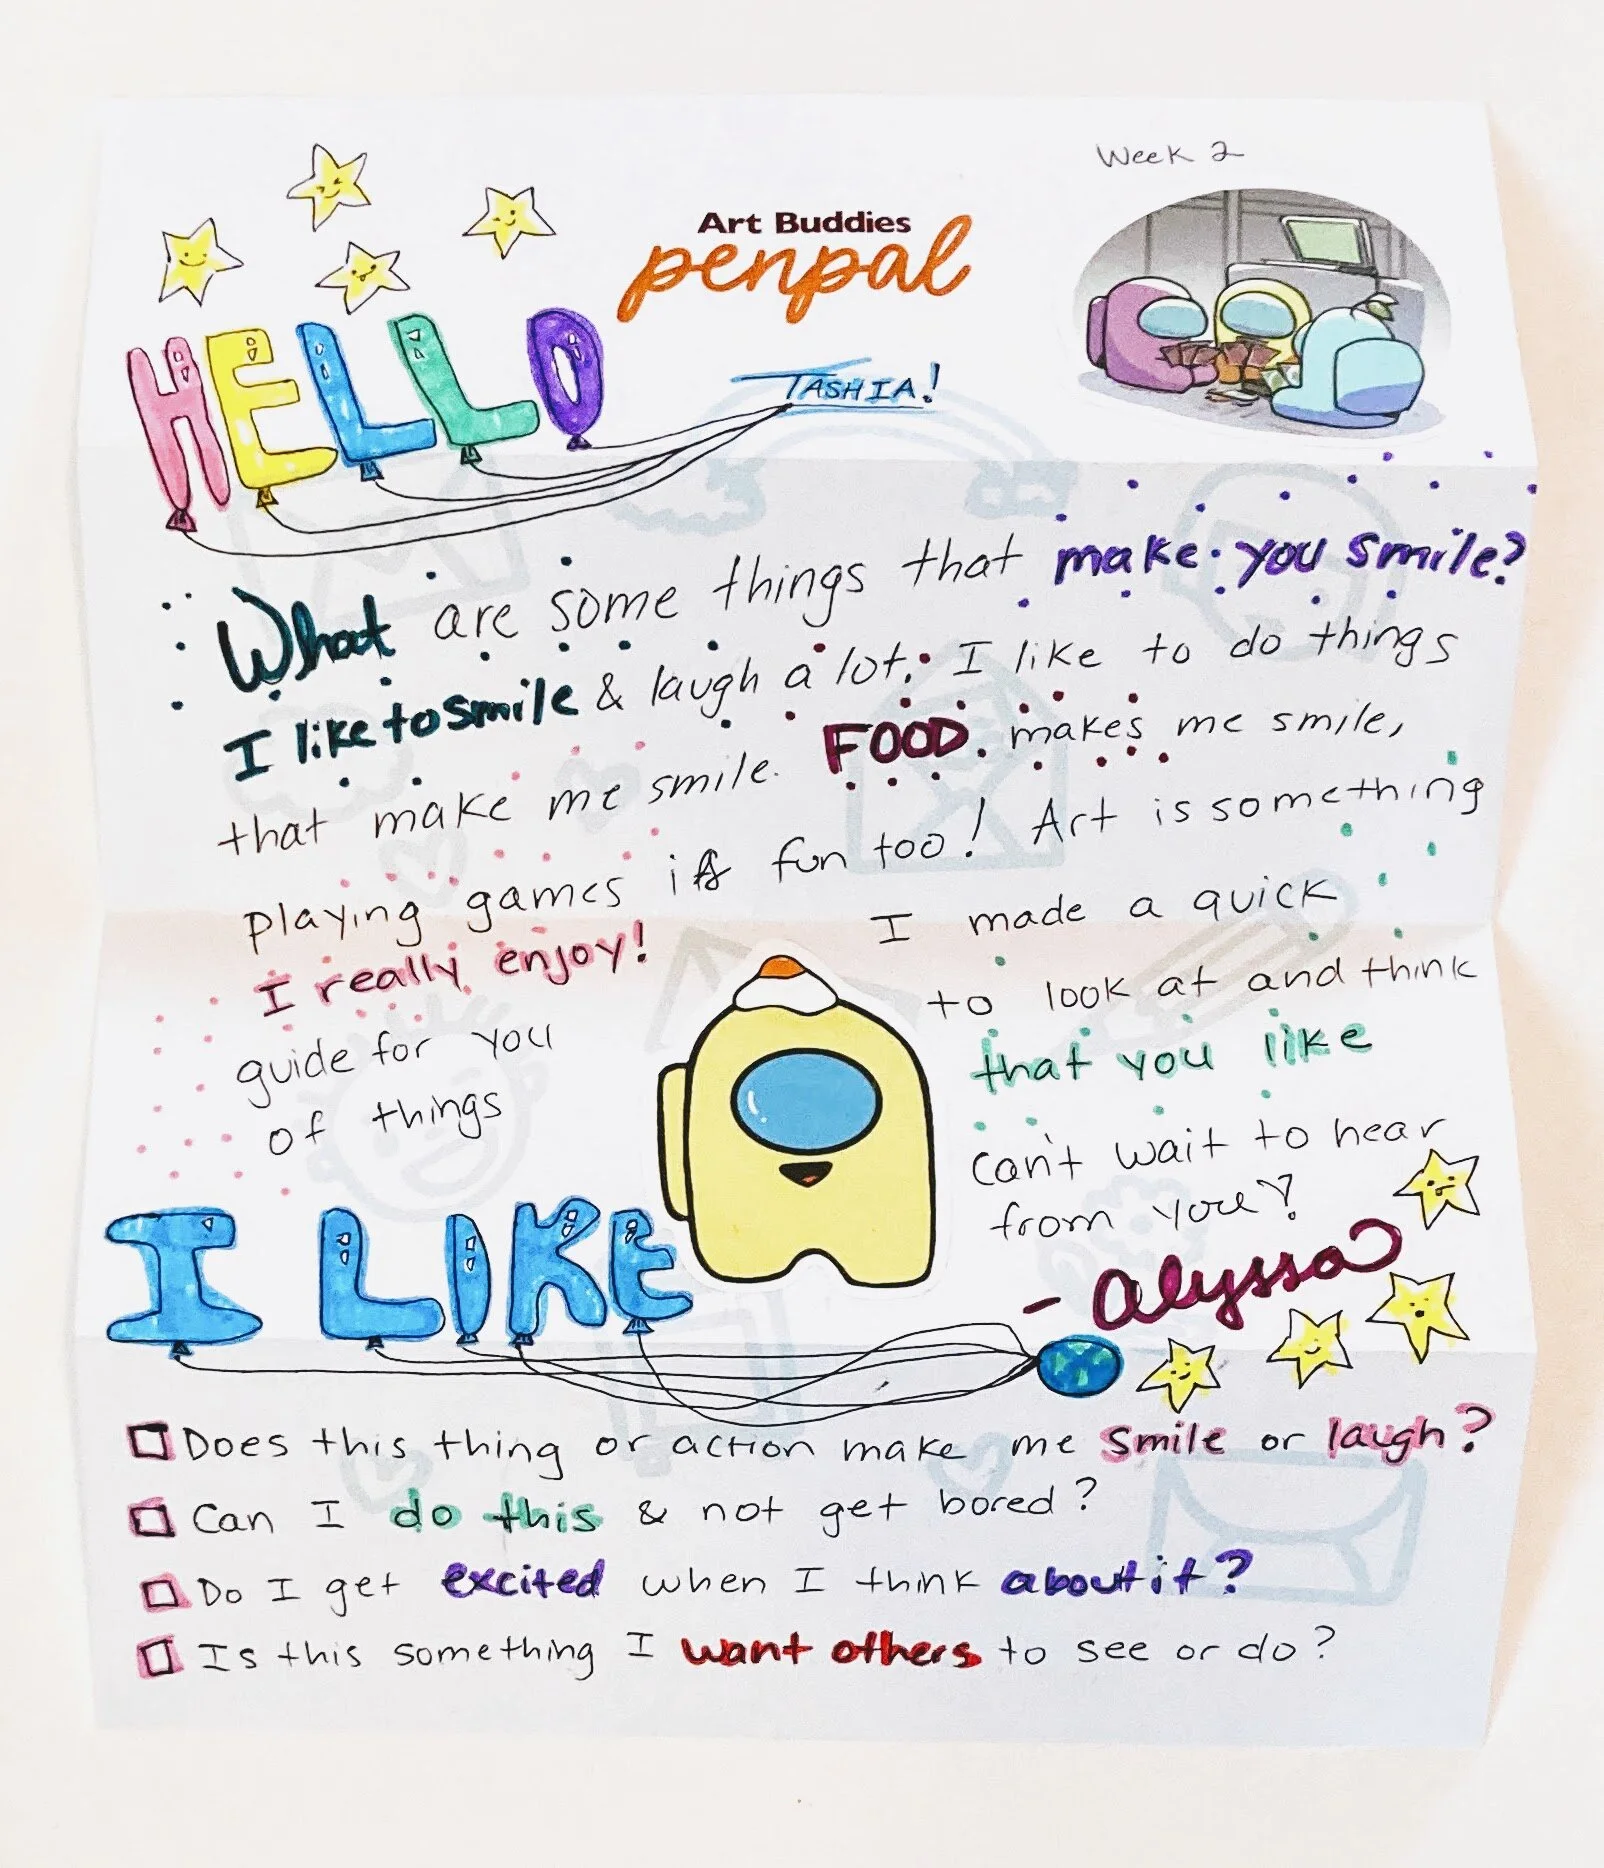 Week 2
Art Buddies
penpal
HELLO
TASHIA!
What are some things that make you smile?
I like to smile & laugh a lot. I like to do things
that make me smile. FOOD makes me smile,
playing games is fun too! Art is something
I really enjoy! I made a quick
guide for you to look at and think
of things that you like
Can't wait to hear
from you?
- Alyssa
I LIKE
Does this thing or action make me smile or laugh?
Can I do this & not get bored?
Do I get excited when I think about it?
Is this something I want others to see or do?